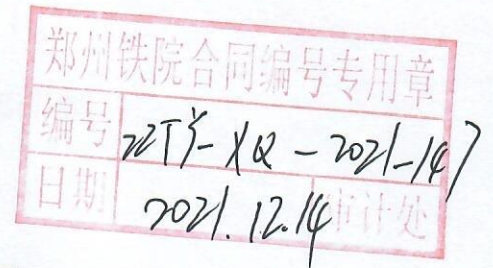 郑州铁院合同编号专用章
编号 ZZTY-XQ-2021-147
日期 2021.12.14 审计处